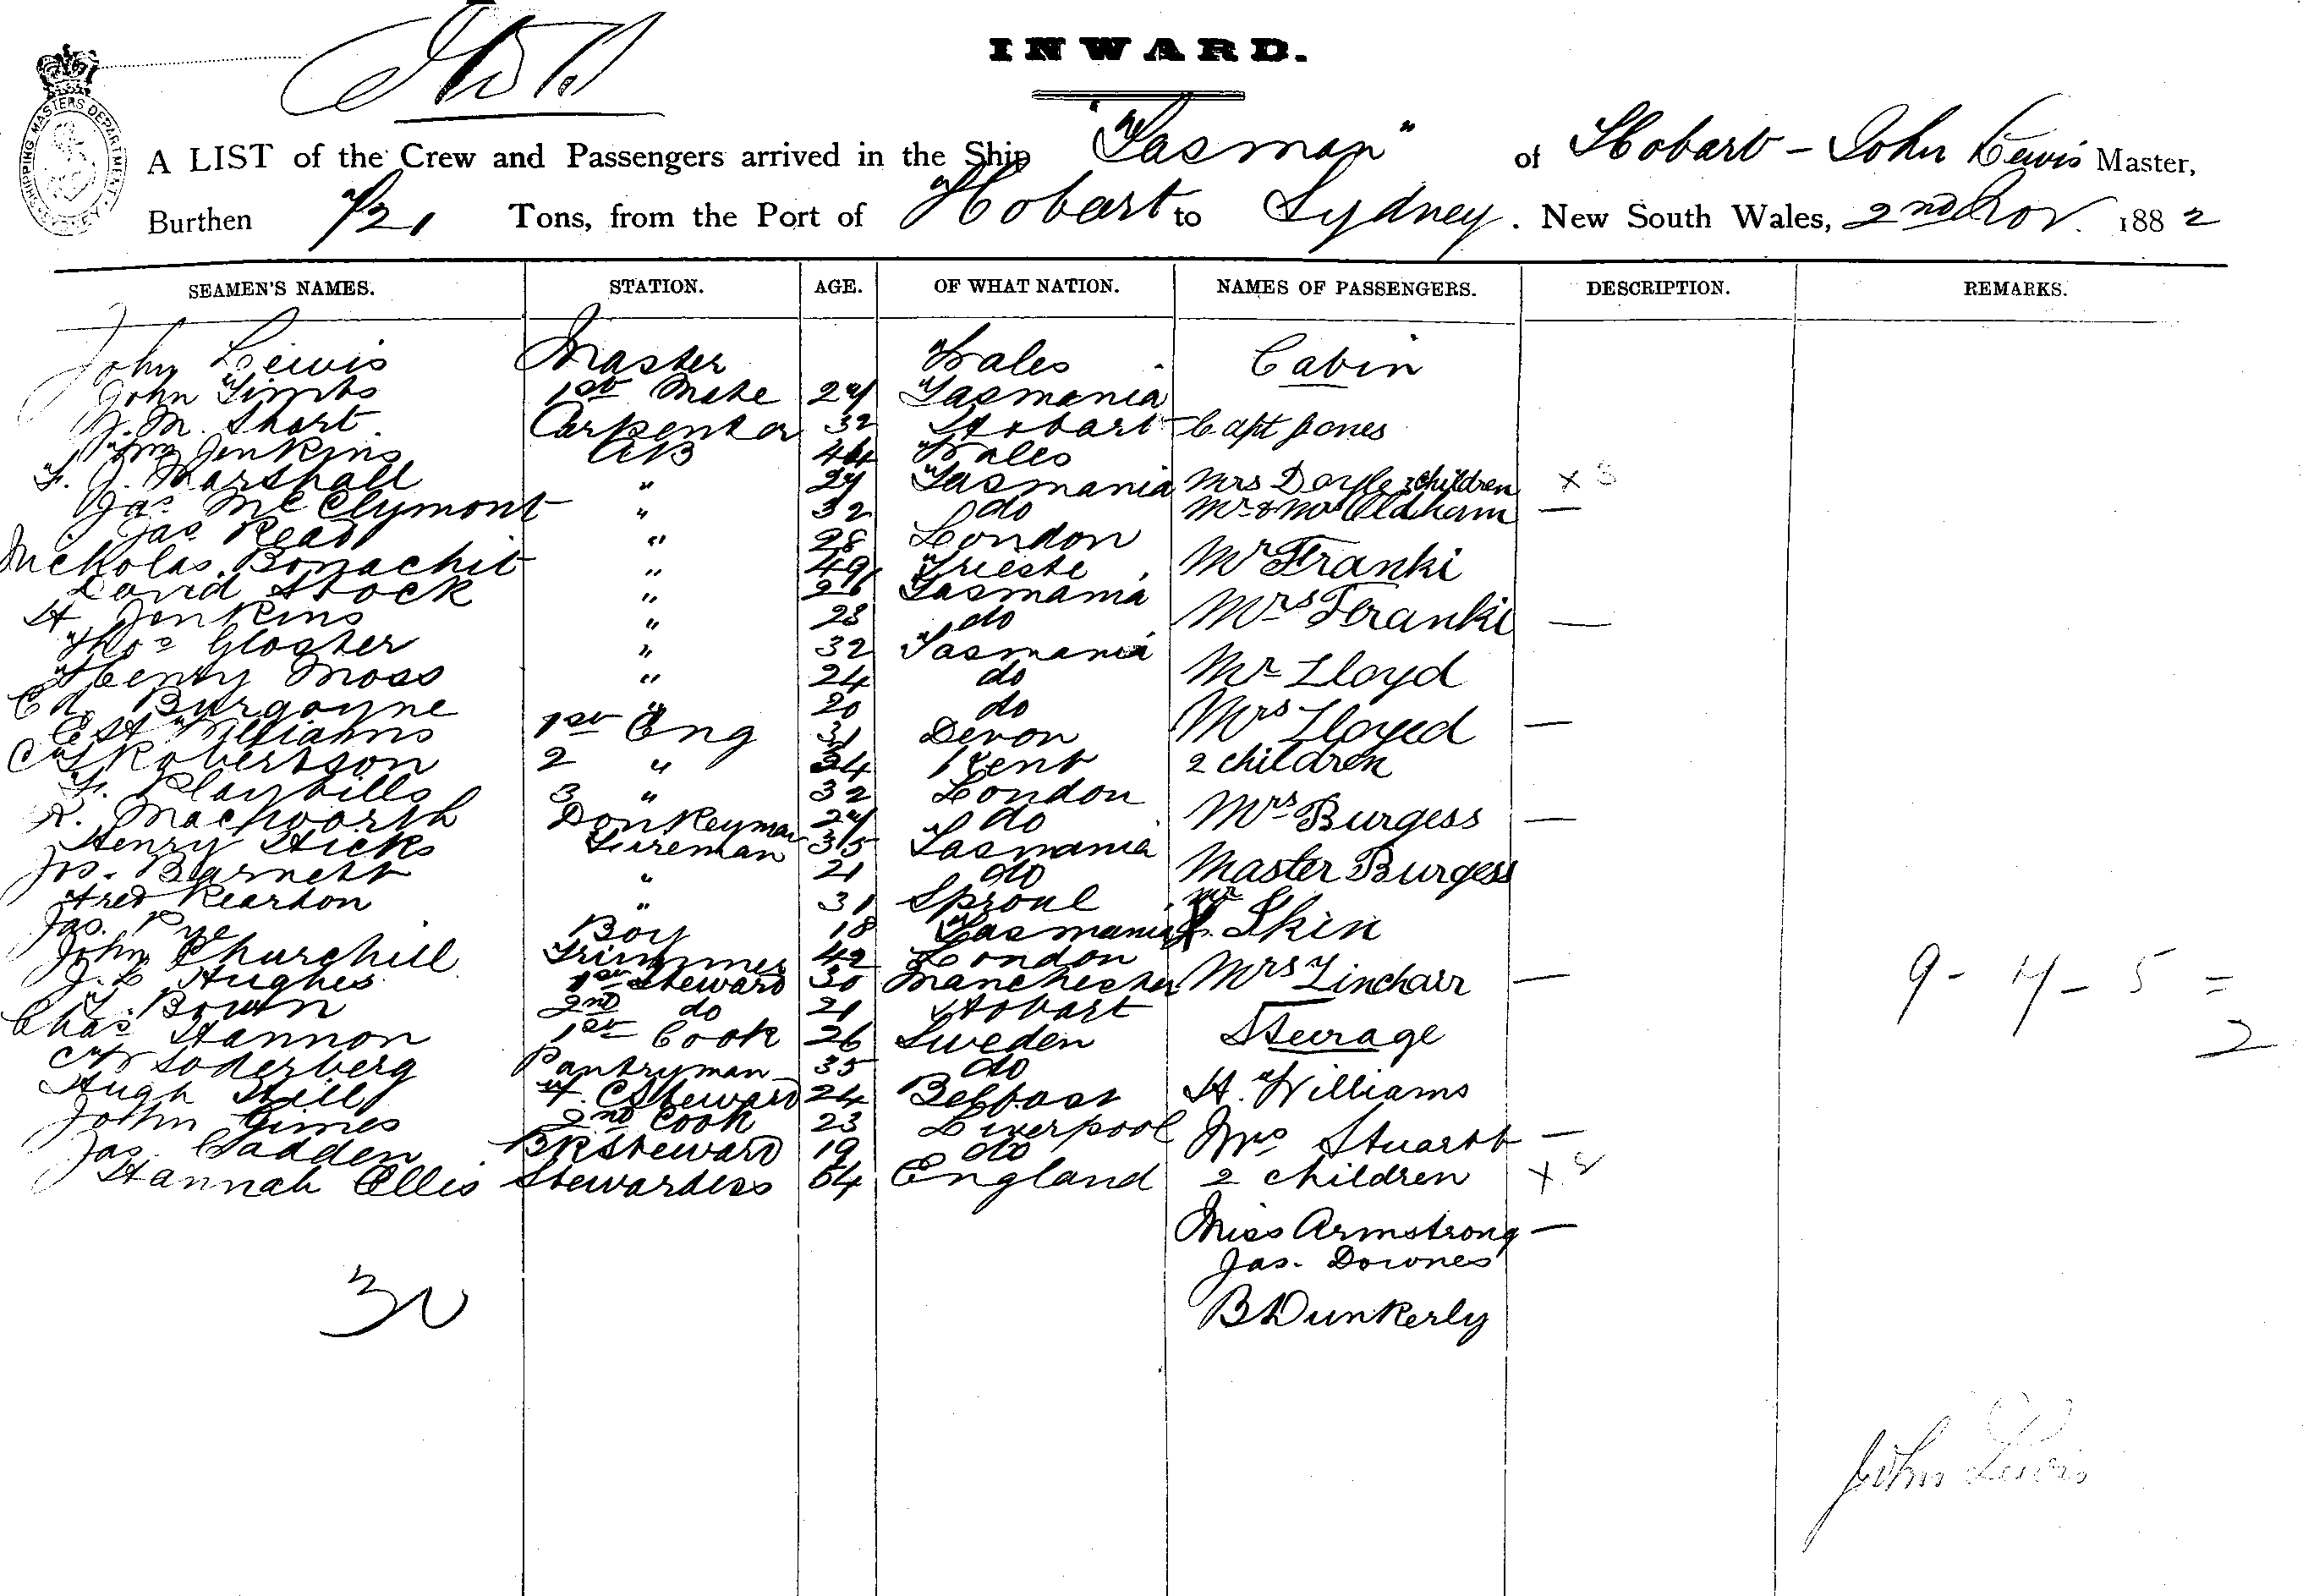 INWARD.
SHIPPING MASTERS DEPARTMENT SYDNEY
A LIST of the Crew and Passengers arrived in the Ship "Tasman" of Hobart - John Lewis Master,
Burthen Tons, from the Port of Hobart to Sydney. New South Wales, 2nd Nov. 1882
SEAMEN'S NAMES. STATION. AGE. OF WHAT NATION. NAMES OF PASSENGERS. DESCRIPTION. REMARKS.
John Lewis Master Wales Cabin
John Timbs 1st Mate Tasmania
J. M. Short Carpenter 32 Hobart Capt Jones
Jenkins AB 44 Wales
F. J. Marshall " Tasmania Mrs Doyle children x 3
Jas McClymont " 32 do Mr & Mrs Oldham —
Jas Read " 28 London
Nickolas Bonachit " 49 Trieste Mr Franki
David Stock " 26 Tasmania
H Jenkins " 23 do Mrs Franki —
Thos Gloster " 32 Tasmania
Henry Moss " 24 do Mr Lloyd
Ed. Burgoyne " 20 do
Williams 1st Eng 31 Devon Mrs Lloyd —
Robertson 2 " 34 Kent 2 children
F. Playbills 3 " 32 London
R. Macworth Donkeyman do Mrs Burgess —
Henry Hicks Fireman 35 Tasmania
Jos. Barnett " 21 do Master Burgess
Fred Rearton " 31 Sproul
Jas. Pye Boy 18 Tasmania Mr Skin
John Churchill Trimmer 42 London
J. L Hughes 1st Steward 30 Manchester Mrs Linchair — 9 - 4 - 5 =
T. Bown 2nd do 21 Hobart 2
Chas Hannon 1st Cook 26 Sweden Steerage
Soderberg Pantryman 35 do
Hugh Hill F. C Steward 24 Belfast H. Williams
John Gimes 2nd Cook 23 Liverpool
Jas. Cadden BR Steward 19 do Mrs Stuartt —
Hannah Ellis Stewardess 54 England 2 children x 2
Miss Armstrong —
Jas. Downes
30
B Dunkerly
John Lewis